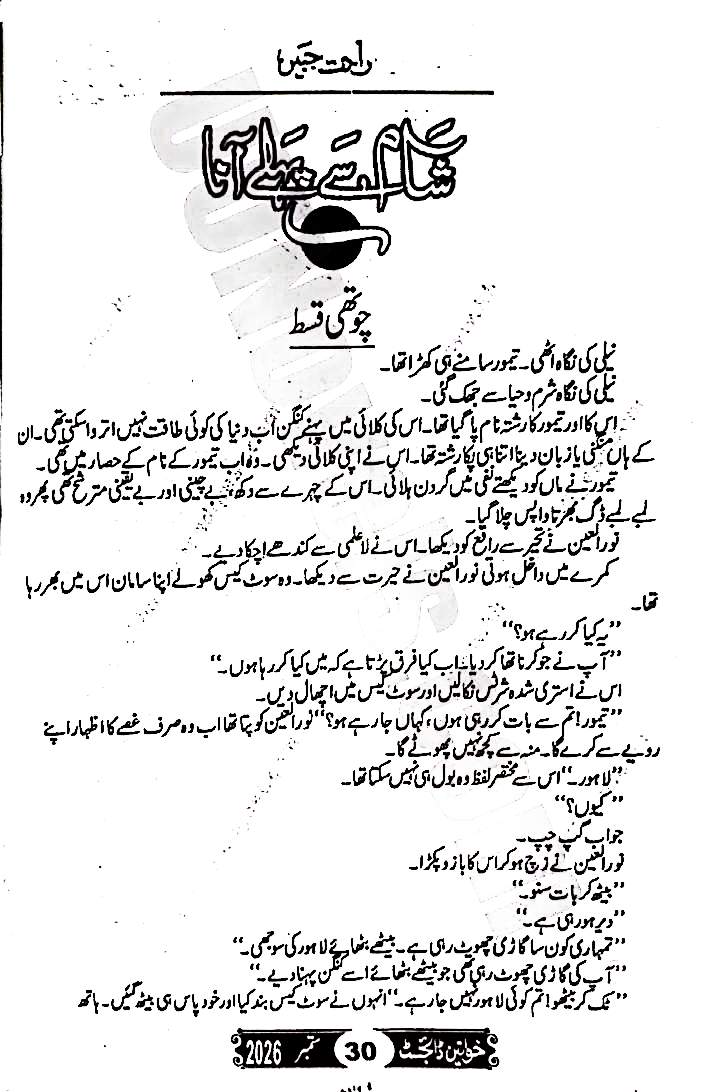 راحت جبیں
شام سے پہلے آنا
چوتھی قسط
نیلی کی نگاہ اٹھی۔ تیمور سامنے ہی کھڑا تھا۔
نیلی کی نگاہ شرم و حیا سے جھک گئی۔
اس کا اور تیمور کا رشتہ نام پا گیا تھا۔ اس کی کلائی میں پہنے کنگن اب دنیا کی کوئی طاقت نہیں اتروا سکتی تھی۔ ان
کے ہاں منگنی یا زبان دینا اتنا ہی پکا رشتہ تھا۔ اس نے اپنی کلائی دیکھی۔ وہ اب تیمور کے نام کے حصار میں تھی۔
تیمور نے ماں کو دیکھتے نفی میں گردن ہلائی۔ اس کے چہرے سے دکھ، بے چینی اور بے یقینی مترشح تھی پھر وہ
لمبے لمبے ڈگ بھرتا واپس چلا گیا۔
نور العین نے تحیر سے رافع کو دیکھا۔ اس نے لاعلمی سے کندھے اچکا دیے۔
کمرے میں داخل ہوتی نور العین نے حیرت سے دیکھا۔ وہ سوٹ کیس کھولے اپنا سامان اس میں بھر رہا
تھا۔
”یہ کیا کر رہے ہو؟“
”آپ نے جو کرنا تھا کر دیا۔ اب کیا فرق پڑتا ہے کہ میں کیا کر رہا ہوں۔“
اس نے استری شدہ شرٹس نکالیں اور سوٹ کیس میں اچھال دیں۔
”تیمور! تم سے بات کر رہی ہوں، کہاں جا رہے ہو؟“ نور العین کو پتا تھا اب وہ صرف غصے کا اظہار اپنے
رویے سے کرے گا۔ منہ سے کچھ نہیں پھوٹے گا۔
”لاہور۔“ اس سے مختصر لفظ وہ بول ہی نہیں سکتا تھا۔
”کیوں؟“
جواب گپ چپ۔
نور العین نے زچ ہو کر اس کا بازو پکڑا۔
”بیٹھ کر بات سنو۔“
”دیر ہو رہی ہے۔“
”تمہاری کون سا گاڑی چھوٹ رہی ہے۔ بیٹھے بٹھائے لاہور کی سوجھی۔“
”آپ کی گاڑی چھوٹ رہی تھی جو بیٹھے بٹھائے اسے کنگن پہنا دیے۔“
”ٹک کر بیٹھو! تم کوئی لاہور نہیں جا رہے۔“ انہوں نے سوٹ کیس بند کیا اور خود پاس ہی بیٹھ گئیں۔ ہاتھ
خواتین ڈائجسٹ 30 ستمبر 2026